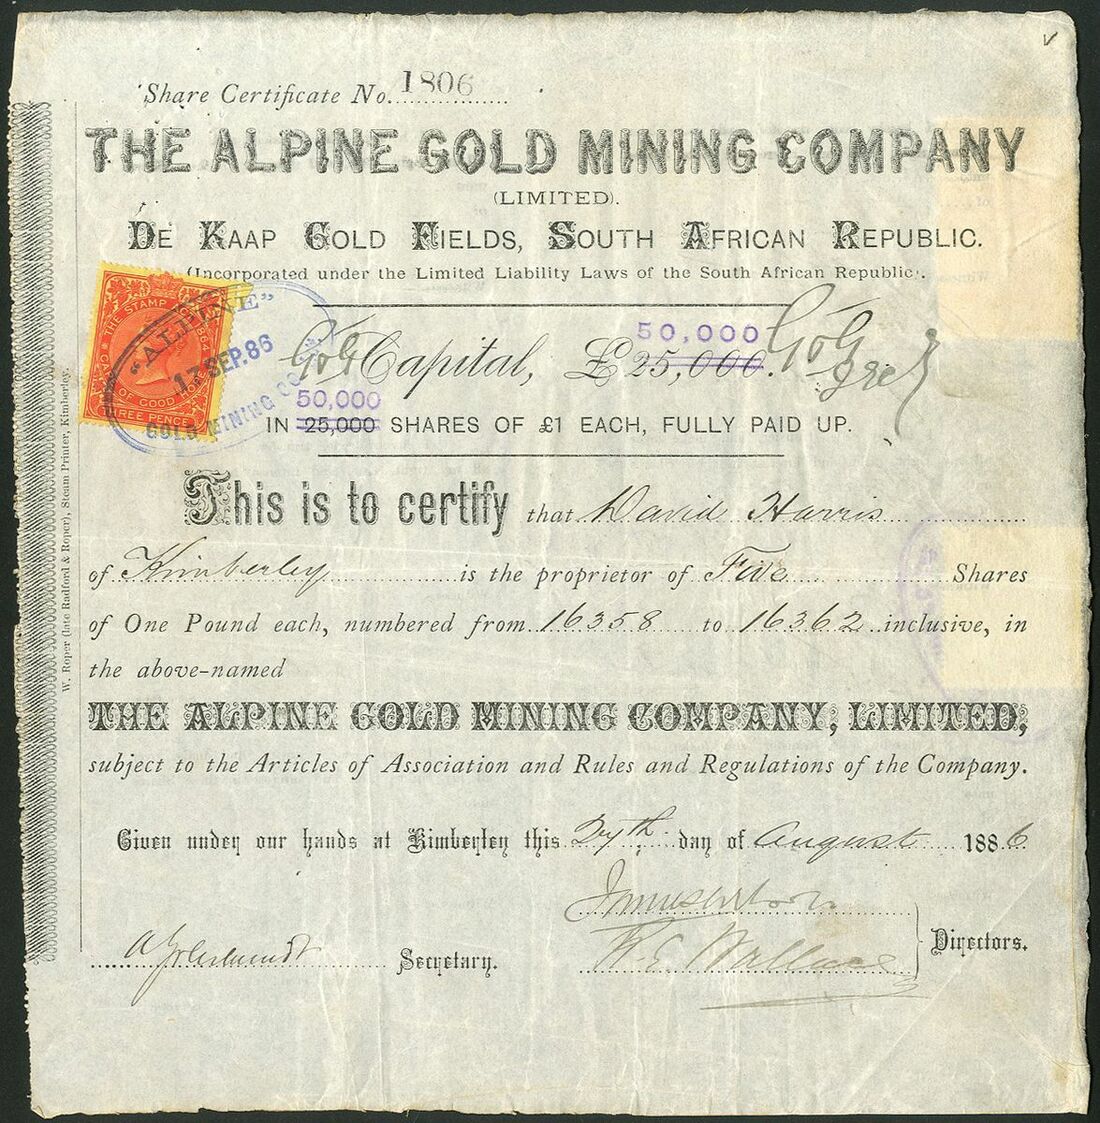 Share Certificate No. 1806
THE ALPINE GOLD MINING COMPANY
(LIMITED).
DE KAAP GOLD FIELDS, SOUTH AFRICAN REPUBLIC.
(Incorporated under the Limited Liability Laws of the South African Republic).
THE STAMP ACT 1864
CAPE OF GOOD HOPE
THREE PENCE
"ALPINE"
17 SEP. 86
GOLD MINING CO
50,000
Capital, £25,000.
50,000
IN 25,000 SHARES OF £1 EACH, FULLY PAID UP.
This is to certify that David Harris
of Kimberley is the proprietor of Five Shares
of One Pound each, numbered from 16358 to 16362 inclusive, in
the above-named
THE ALPINE GOLD MINING COMPANY, LIMITED,
subject to the Articles of Association and Rules and Regulations of the Company.
Given under our hands at Kimberley this 27th day of August 1886
Wallace
Secretary.
Directors.
W. Roper (late Radford & Roper), Steam Printer, Kimberley.